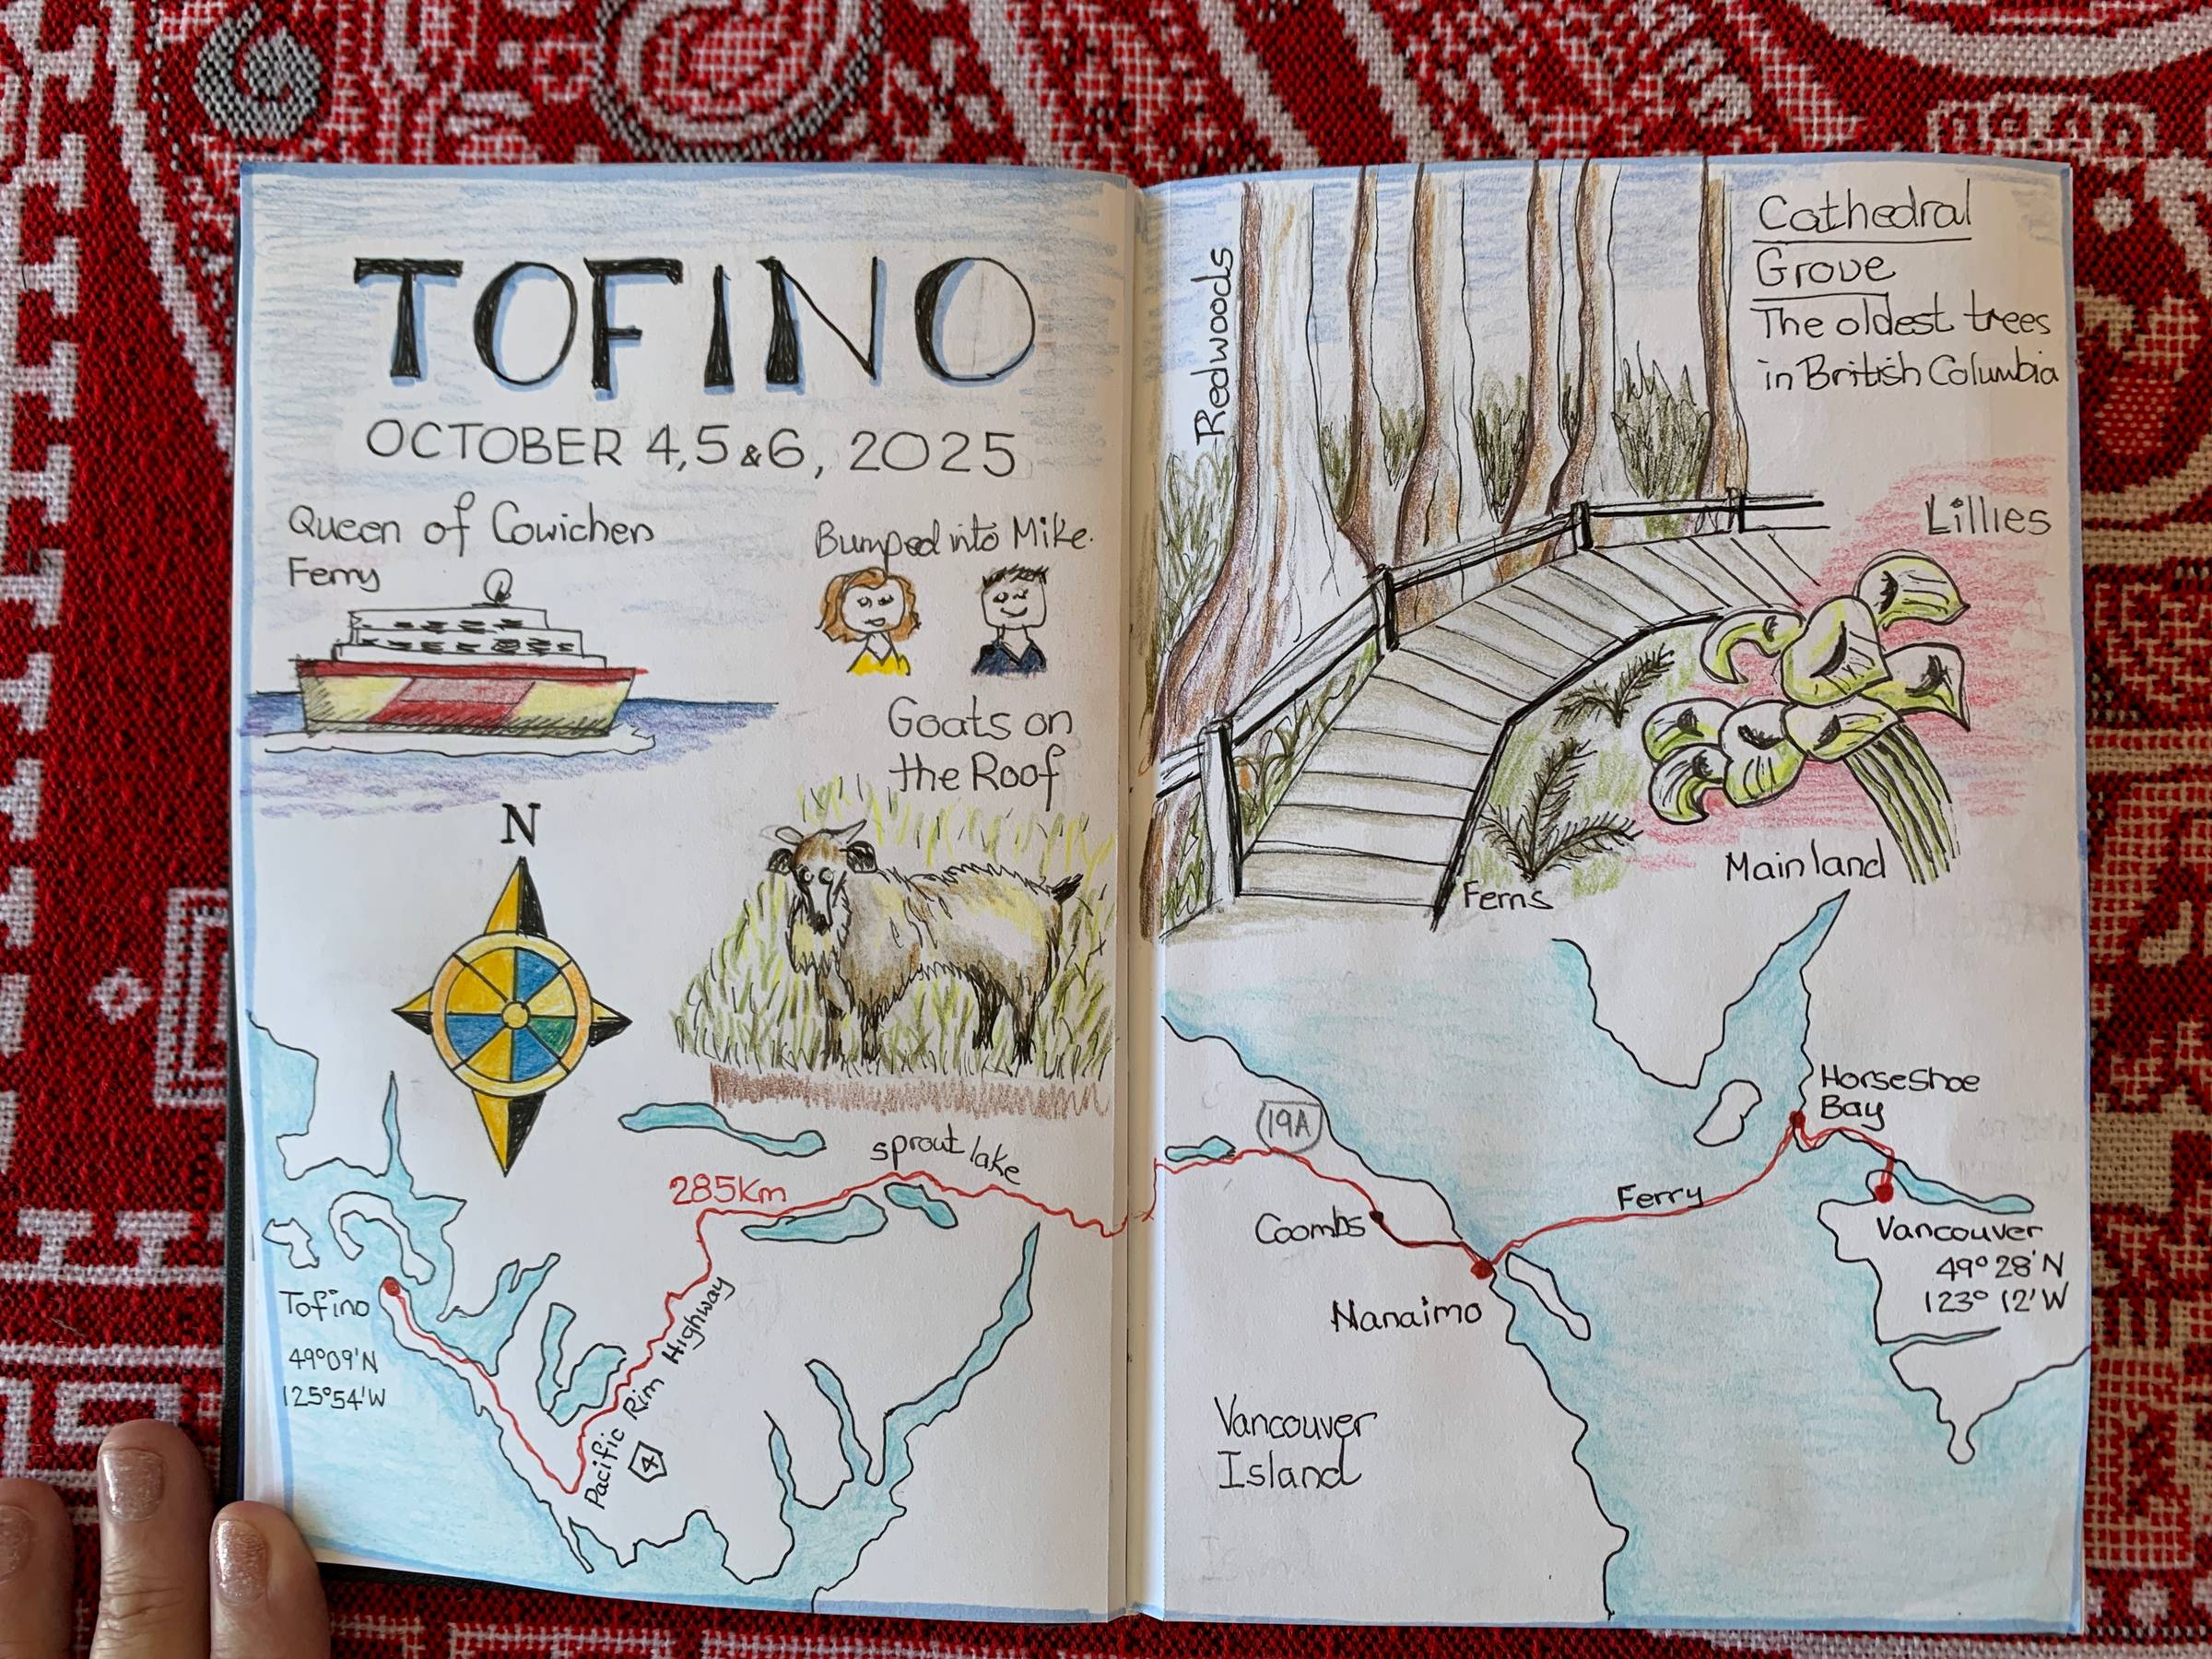 TOFINO
OCTOBER 4,5 & 6, 2025
Queen of Cowichen
Ferry
Bumped into Mike.
Goats on
the Roof
N
sprout lake
285Km
Tofino
49°09'N
125°54'W
Pacific Rim Highway
4
Redwoods
Cathedral
Grove
The oldest trees
in British Columbia
Lillies
Ferns
Mainland
Horseshoe
Bay
19A
Coombs
Ferry
Nanaimo
Vancouver
49° 28'N
123° 12'W
Vancouver
Island